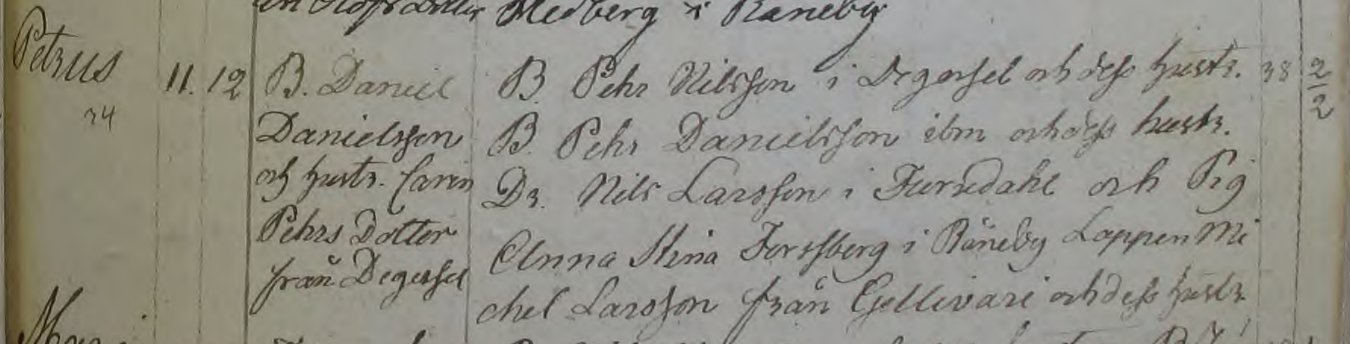 Medberg i Råneby
Petrus 11. 12 B. Daniel B. Pehr Nilsson i Degersel och dess hustr. 38 2/2
24 Danielsson B. Pehr Danielsson ibm och dess hustr.
och hustr. Caren Dr. Nils Larsson i Fursedahl och Pig
Pehrs Dotter Anna Stina Forssberg i Råneby Lappen Mi
från Degersel chel Larsson från Gellivare och dess hustr